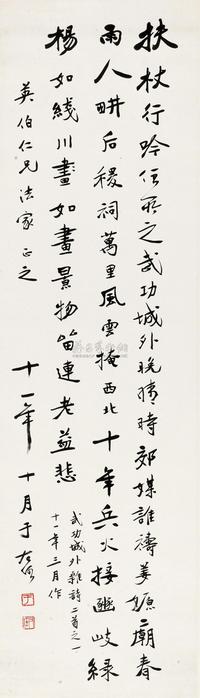 扶杖行吟任所之武功城外晚晴時郊媒誰禱姜嫄廟春
雨人畊后稷祠萬里風雲掩西北十年兵火接豳岐綠
楊如綫川如畫景物留連老益悲
武功城外雜詩二首之一
十一年三月作
英伯仁兄法家正之
十一年十月于右任